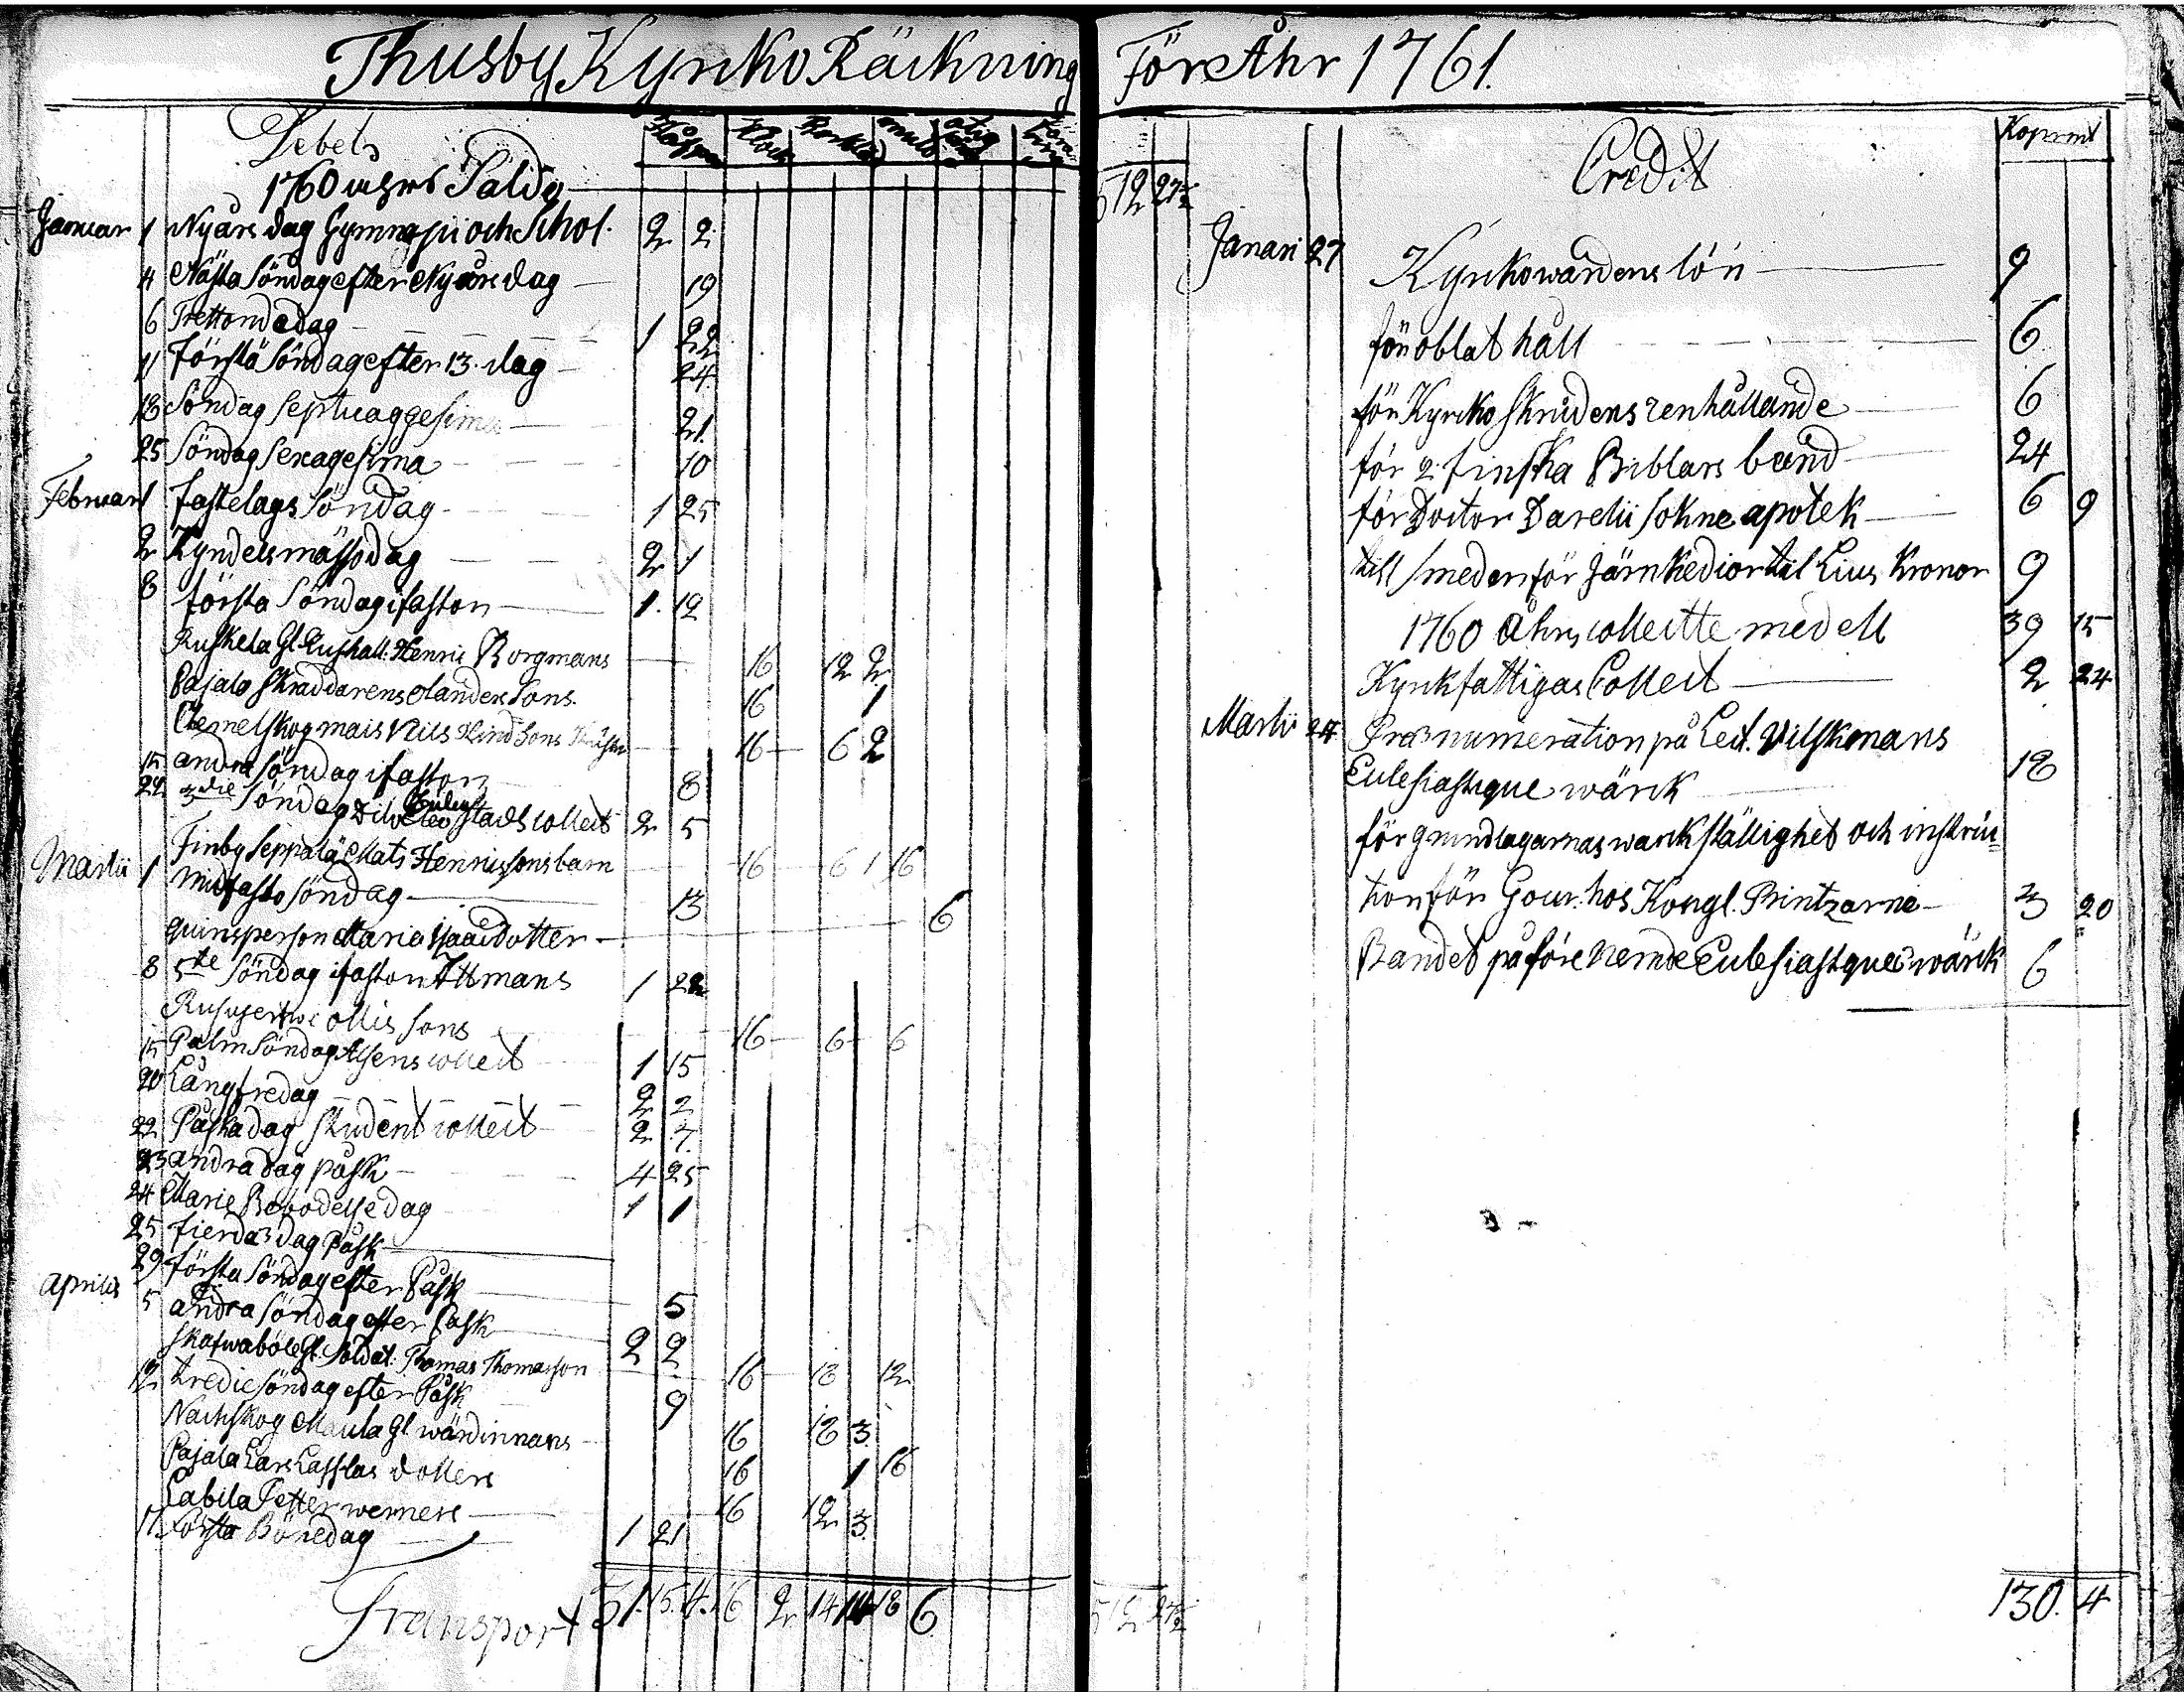 Thusby Kyrko Räckning För Åhr 1761.
Debet
Håfpen Klock Bårkläd
1760 Saldo 512 27½
Januar 1 Nyårsdag Gymnasii och Schol. 2 2
4 Nästa Söndag efter Nyårsdag 19
6 Trettondedag 1 22
11 Första Söndag efter 13. dag 24
18 Söndag Septuaggesima 21
25 Söndag Sexagesima 10
Februari 1 fastelags Söndag 1 25
2 Kyndelsmässodag 2 1
8 första Söndag i faston 1. 12
Ruskela Gl. Rushåll. Henric Borgmans 16 12 2
Pajala Skräddarens olanders Sons. 16 1
Nils Hindsons 16 6 2
15 andra Söndag i faston 8
22 3die Söndag stads collect 2 5
Finby Seppälä Mats Henrissons barn 16 6 1 16
Martii 1 Midfasto Söndag 13
quinsperson Maria dotter 6
8 5te Söndag i faston Ittmans 1 22
ollis Sons 16 6 6
15 Palm Söndag collect 1 15
20 Långfredag 2 2
22 Påskadag Student collect 2 7.
23 andradag påsk 4 25
24 Marie Bebodelsedag 1 1
25 fierde dag Påsk
29 första Söndag efter Påsk 5
Aprilis 5 andra Söndag efter Påsk 2 2
Skafwaböle Gl. Soldat. Thomas Thomasson 16 18 12
12 tredie Söndag efter Påsk 9
Nackskog Maula Gl wärdinnans 16 18 3
Pajala Lars dotters 16 1 16
Labila Petter werners 16 12 3
17 Första Bönedag 1 21
Transport 31. 15. 4. 16 2 14 14 18 6 512 27½
Credit
Kopr mt
Januari 27 Kyrkowärdens lön 9
för oblat håll 6
för Kyrko Skrudens renhållande 6
för 2. finska Biblars band 24
för Doctor Darelii Sokne apotek 6 9
till smeden för Järn Kedior til Lius Kronor 9
1760 åhrs collectte medell 39 15
Kyrkfattigas Collect 2 24
Martii 24 Prænumeration på Lect. Vilskmans
Eclesiastique wärk 18
för grundlagarnas wärkställighet och instruc=
tion för Gour. hos Kongl. Printzarne 3 20
Bandet på före nemde Eclesiastque wärk 6
130. 4